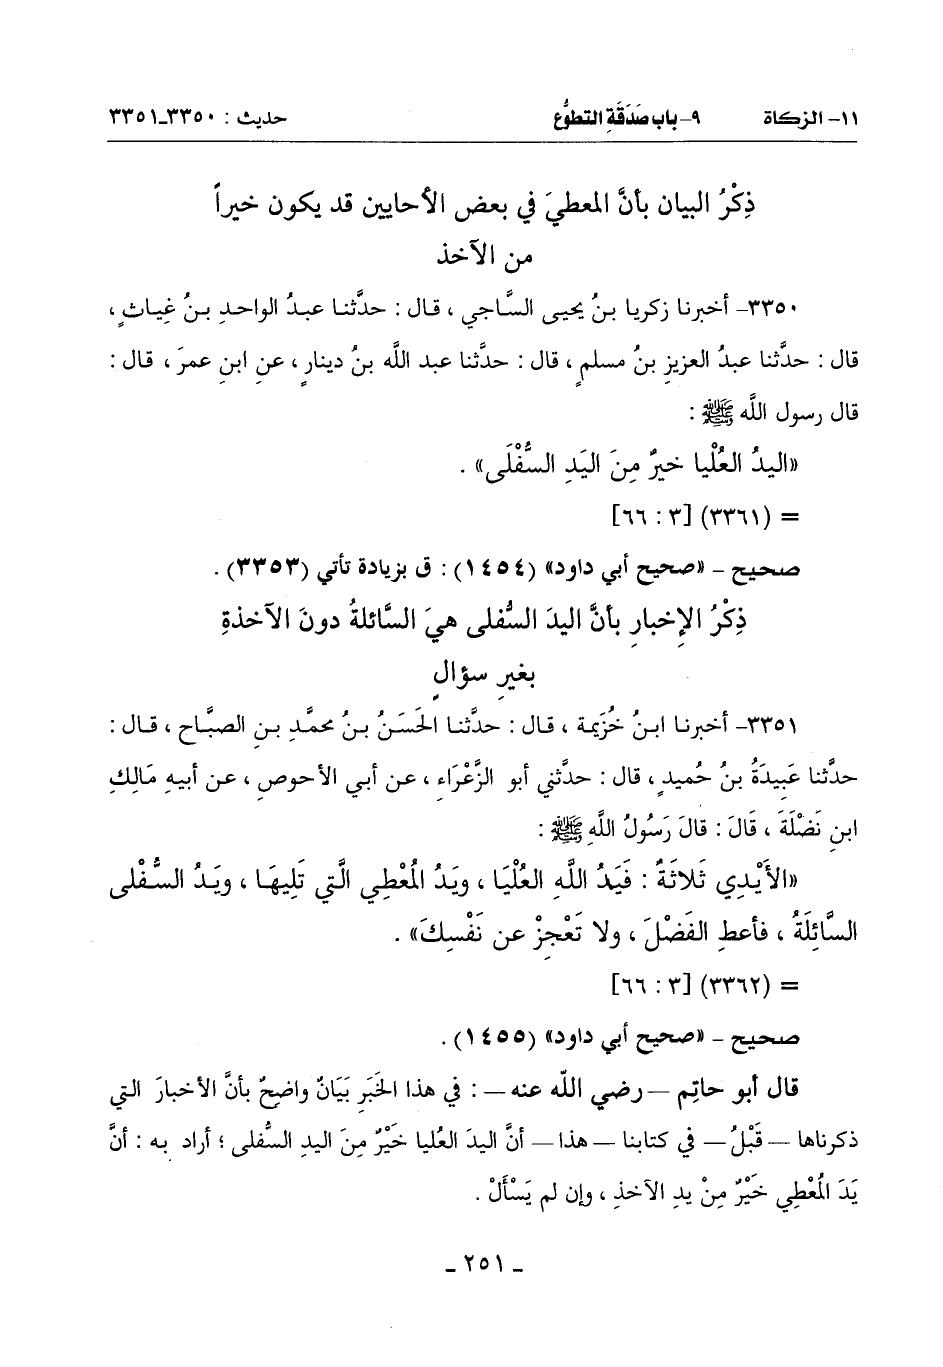 ١١- الزكاة ٩- باب صَدَقَةِ التطوُّع حديث : ٣٣٥٠-٣٣٥١
ذِكْرُ البيان بأنَّ المعطيَ في بعض الأحايين قد يكون خيراً
من الآخذ
٣٣٥٠- أخبرنا زكريا بنُ يحيى السَّاجي ، قال : حدَّثنا عبدُ الواحدِ بنُ غِياثٍ ،
قال : حدَّثنا عبدُ العزيزِ بنُ مسلمٍ ، قال : حدَّثنا عبد الله بنُ دينارٍ ، عنِ ابنِ عمرَ ، قال :
قال رسول اللَّه ﷺ :
«اليدُ العُلْيا خيرٌ مِنَ اليَدِ السُّفْلَى» .
= (٣٣٦١) [٣ : ٦٦]
صحيح - «صحيح أبي داود» (١٤٥٤) : ق بزيادة تأتي (٣٣٥٣) .
ذِكْرُ الإِخبارِ بأنَّ اليدَ السُّفلى هيَ السَّائلةُ دونَ الآخذةِ
بغيرِ سؤالٍ
٣٣٥١- أخبرنا ابنُ خُزَيمة ، قال : حدَّثنا الحَسَنُ بنُ محمَّدِ بنِ الصبَّاح ، قال :
حدَّثنا عَبِيدَةُ بنُ حُميدٍ ، قال : حدَّثني أبو الزَّعْرَاءِ ، عن أبي الأحوصِ ، عن أبيهِ مَالِكِ
ابنِ نَضْلَةَ ، قَالَ : قالَ رَسُولُ اللَّهِ ﷺ :
«الأَيْدِي ثَلاثَةٌ : فَيَدُ اللَّهِ العُلْيَا ، ويَدُ المُعْطِي الَّتي تَلِيهَا ، ويَدُ السُّفْلى
السَّائِلَةُ ، فأعطِ الفَضْلَ ، ولا تَعْجِزْ عن نَفْسِكَ» .
= (٣٣٦٢) [٣ : ٦٦]
صحيح - «صحيح أبي داود» (١٤٥٥) .
قال أبو حاتِم — رضي اللَّه عنه — : في هذا الخَبَرِ بَيَانٌ واضحٌ بأنَّ الأخبارَ التي
ذكرناها — قَبْلُ — في كتابنا — هذا — أنَّ اليدَ العُليا خَيْرٌ مِنَ اليدِ السُّفلى ؛ أراد به : أنَّ
يَدَ المُعْطِي خَيْرٌ مِنْ يدِ الآخذِ ، وإن لم يَسْأَلْ .
- ٢٥١ -